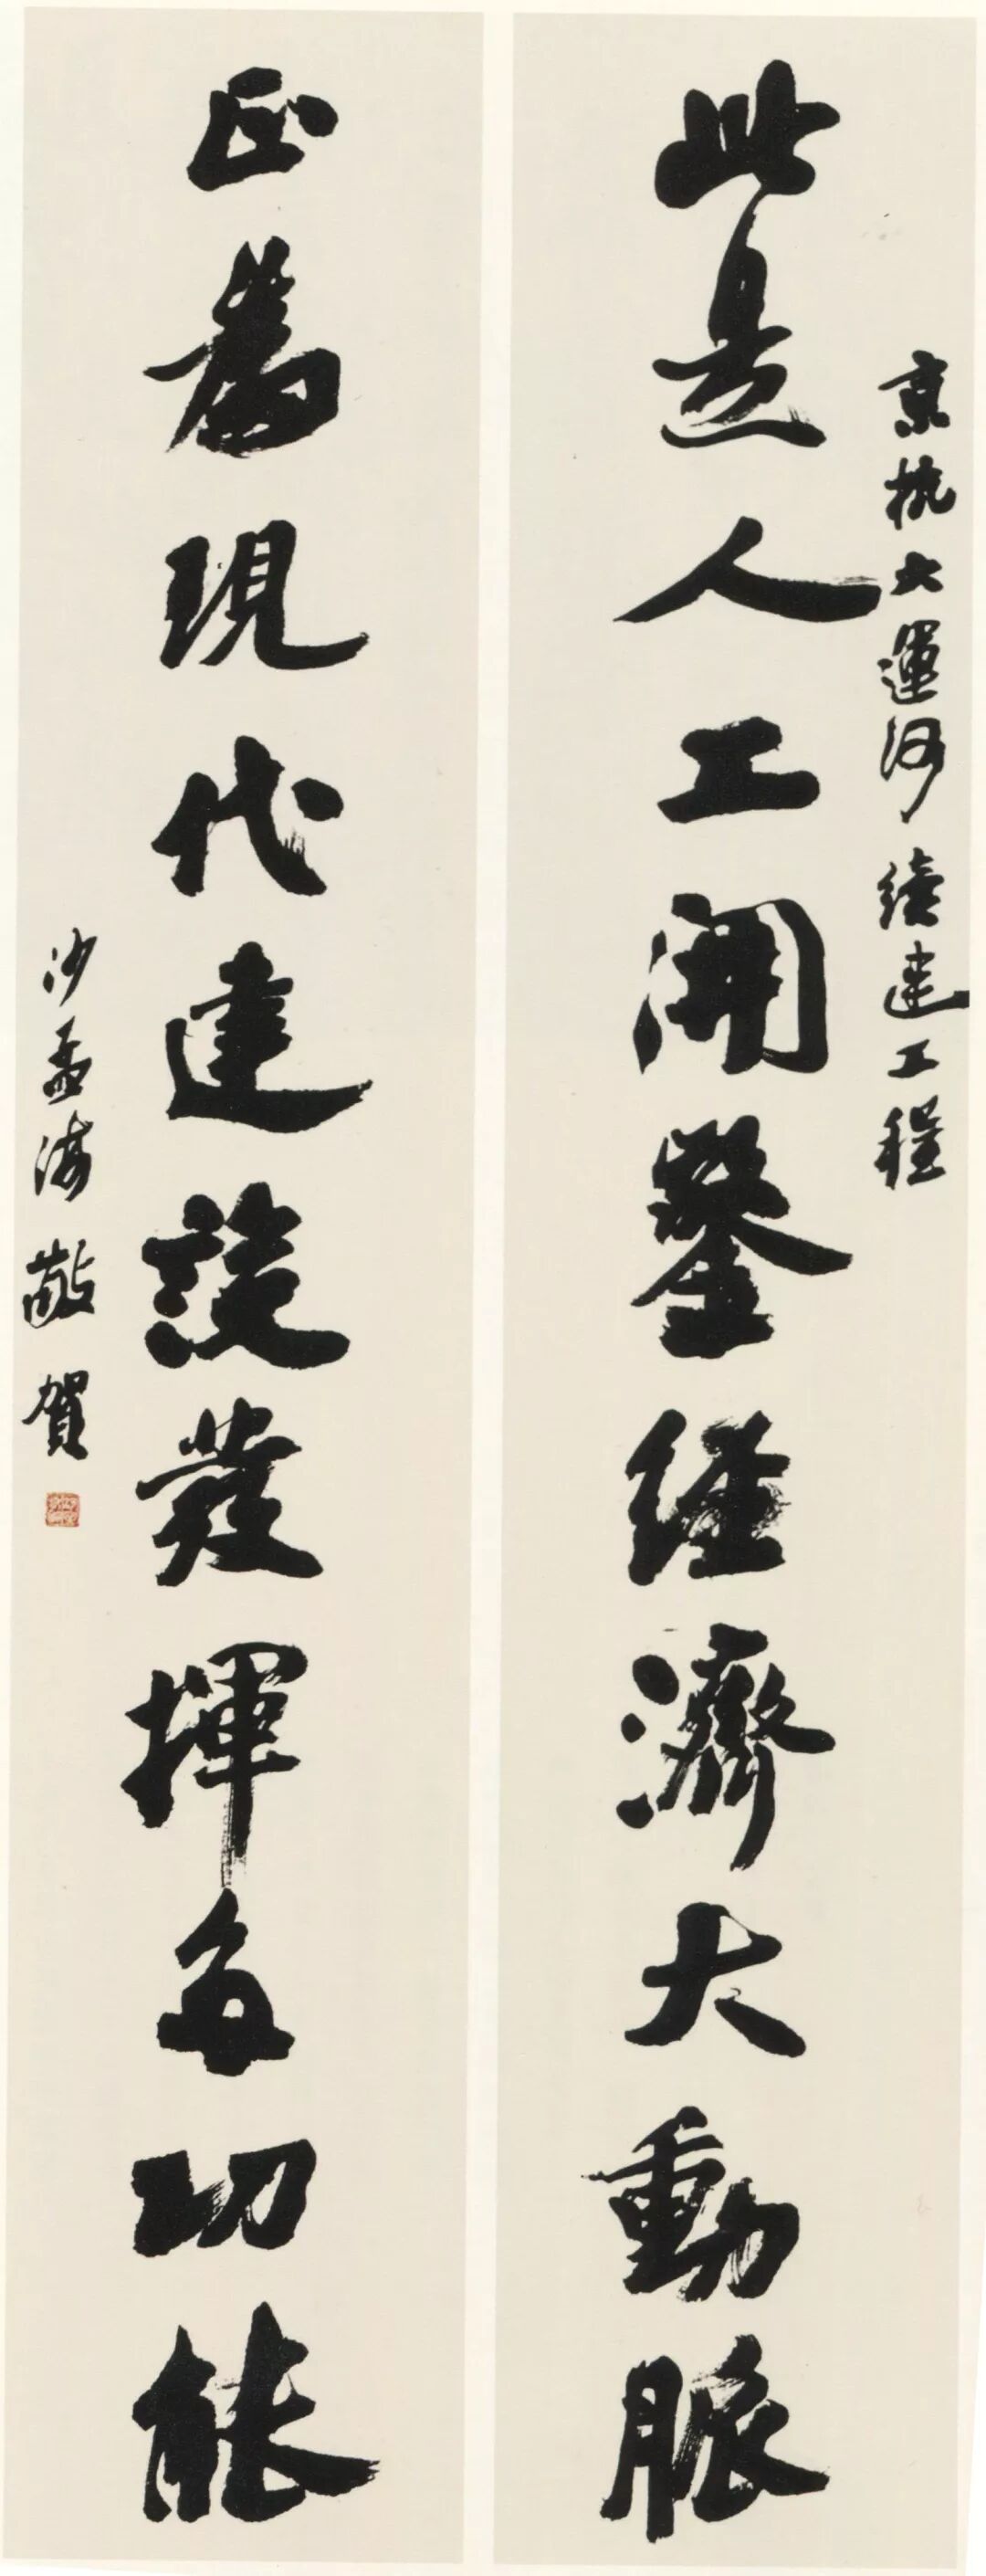 京杭大運河續建工程
此是人工開鑿經濟大動脈
正為現代建設發揮多功能
沙孟海敬賀